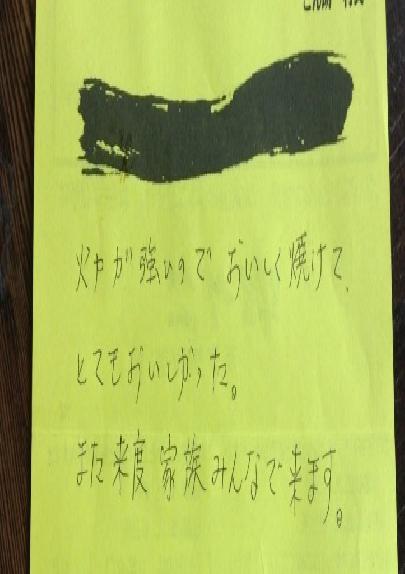 火力が強いので おいしく焼けて、
とてもおいしかった。
また来度 家族みんなで来ます。